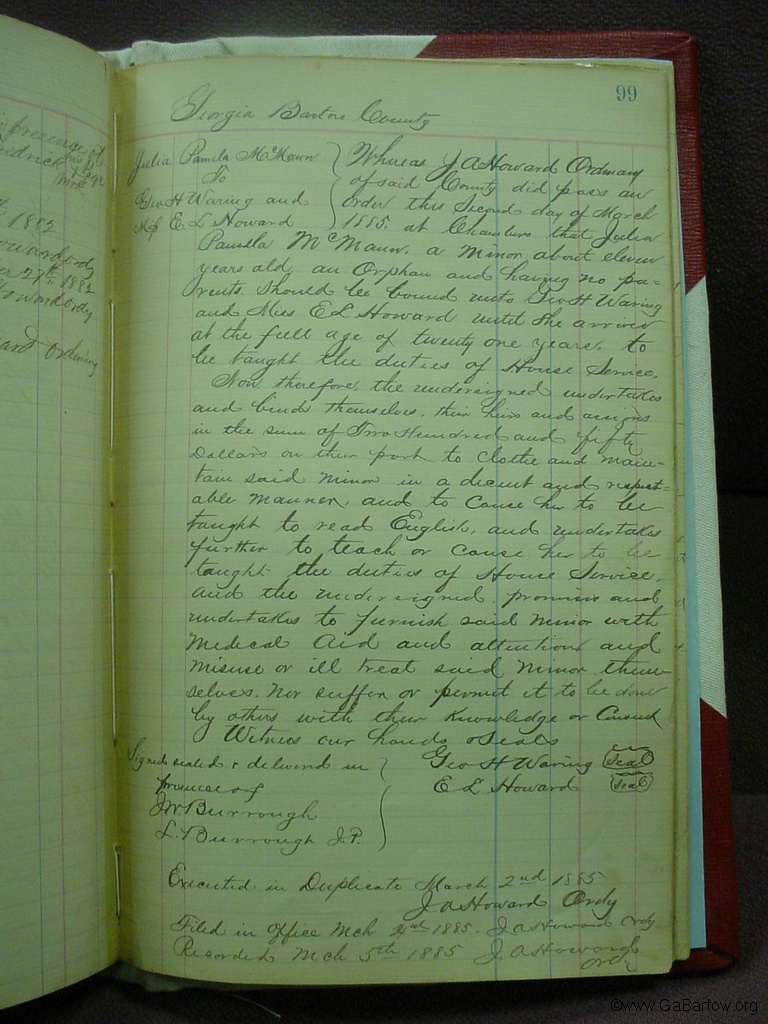 99
Georgia Bartow County
Julia Pamela McMann
To
Geo H Waring and
Miss E L Howard
Whereas J A Howard Ordinary
of said County did pass an
order this Second day of March
1885. at Chambers that Julia
Pamella McMann. a minor about eleven
years old, an Orphan and having no pa=
rents. Should be bound unto Geo H Waring
and Miss E L Howard until She arrives
at the full age of twenty one years. to
be taught the duties of House Service.
Now therefore, the undersigned undertakes
and binds themselves, their heirs and assigns
in the sum of Two Hundred and fifty
Dollars on their part to clothe and main-
tain said minor in a decent and respect=
able manner. and to cause her to be
taught to read English, and undertakes
further to teach or cause her to be
taught the duties of House Service.
and the undersigned. promises and
undertakes to furnish said minor with
Medical Aid and attention and
misuse or ill treat said minor them-
selves. Nor suffer or permit it to be done
by others with their knowledge or Consent
Witness our hands & Seals
Signed sealed & delivered in
presence of
J W Burrough
L. Burrough J.P.
Geo H Waring Seal
E L Howard Seal
Executed in Duplicate March 2nd 1885
J A Howard Ordy
Filed in office Mch 1885. J A Howard Ordy
Recorded Mch 5th 1885 J A Howard
Ordy
in presence of
1882
Howard ordy
27th 1882
Howard ordy
ordinary
©www.GaBartow.org